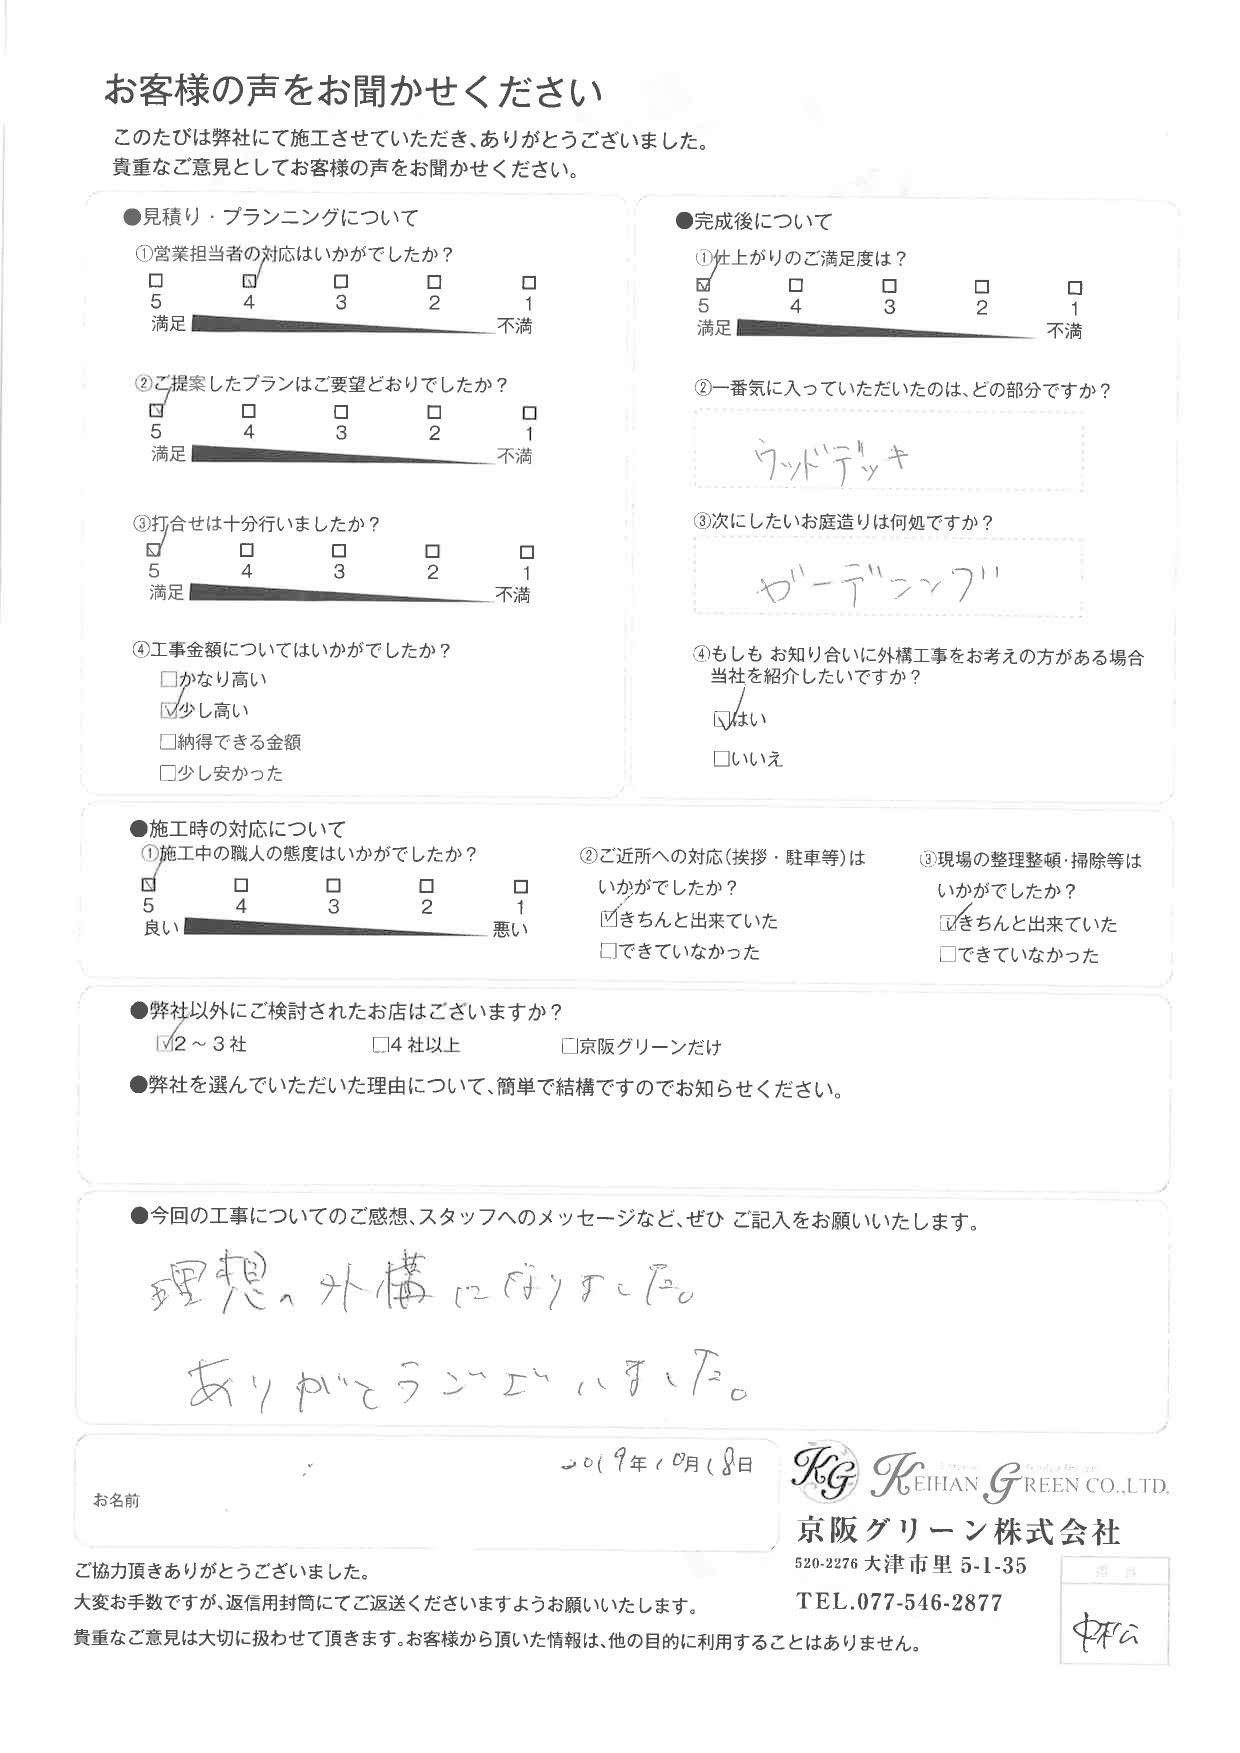 お客様の声をお聞かせください
このたびは弊社にて施工させていただき、ありがとうございました。
貴重なご意見としてお客様の声をお聞かせください。
●見積り・プランニングについて
①営業担当者の対応はいかがでしたか？
□ ☑ □ □ □
5 4 3 2 1
満足 不満
②ご提案したプランはご要望どおりでしたか？
☑ □ □ □ □
5 4 3 2 1
満足 不満
③打合せは十分行いましたか？
☑ □ □ □ □
5 4 3 2 1
満足 不満
④工事金額についてはいかがでしたか？
□かなり高い
☑少し高い
□納得できる金額
□少し安かった
●完成後について
①仕上がりのご満足度は？
☑ □ □ □ □
5 4 3 2 1
満足 不満
②一番気に入っていただいたのは、どの部分ですか？
ウッドデッキ
③次にしたいお庭造りは何処ですか？
ガーデニング
④もしも お知り合いに外構工事をお考えの方がある場合
当社を紹介したいですか？
☑はい
□いいえ
●施工時の対応について
①施工中の職人の態度はいかがでしたか？
☑ □ □ □ □
5 4 3 2 1
良い 悪い
②ご近所への対応(挨拶・駐車等)は
いかがでしたか？
☑きちんと出来ていた
□できていなかった
③現場の整理整頓・掃除等は
いかがでしたか？
☑きちんと出来ていた
□できていなかった
●弊社以外にご検討されたお店はございますか？
☑2～3社 □4社以上 □京阪グリーンだけ
●弊社を選んでいただいた理由について、簡単で結構ですのでお知らせください。
●今回の工事についてのご感想、スタッフへのメッセージなど、ぜひ ご記入をお願いいたします。
理想の外構になりました。
ありがとうございました。
2019年10月18日
お名前
KG KEIHAN GREEN CO.,LTD.
京阪グリーン株式会社
520-2276 大津市里 5-1-35
TEL.077-546-2877
ご協力頂きありがとうございました。
大変お手数ですが、返信用封筒にてご返送くださいますようお願いいたします。
貴重なご意見は大切に扱わせて頂きます。お客様から頂いた情報は、他の目的に利用することはありません。